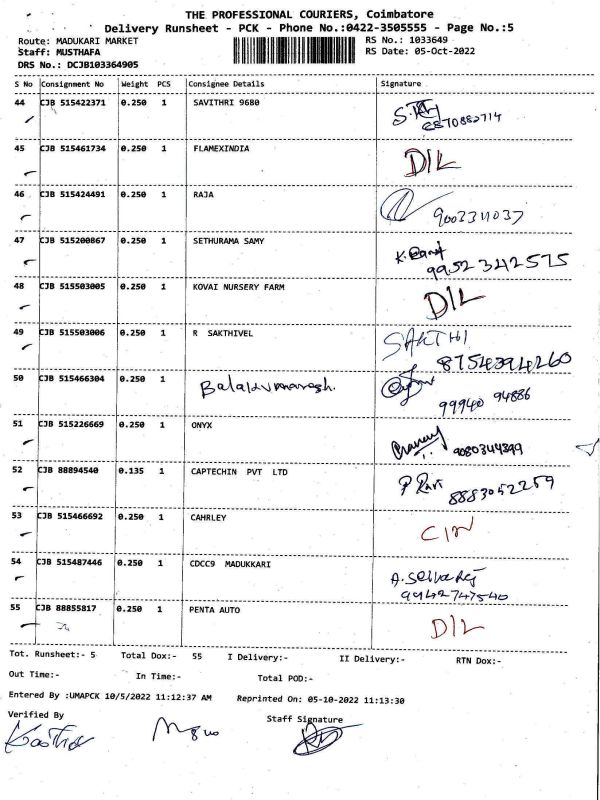 THE PROFESSIONAL COURIERS, Coimbatore
Delivery Runsheet - PCK - Phone No.:0422-3505555 - Page No.:5
Route: MADUKARI MARKET
RS No.: 1033649
Staff: MUSTHAFA
RS Date: 05-Oct-2022
DRS No.: DCJB103364905
S No Consignment No Weight PCS Consignee Details Signature
44 CJB 515422371 0.250 1 SAVITHRI 9680
8870882714
45 CJB 515461734 0.250 1 FLAMEXINDIA D/L
46 CJB 515424491 0.250 1 RAJA
47 CJB 515200867 0.250 1 SETHURAMA SAMY
9952342575
48 CJB 515503005 0.250 1 KOVAI NURSERY FARM D/L
49 CJB 515503006 0.250 1 R SAKTHIVEL SAKTHI
8754394260
50 CJB 515466304 0.250 1
99940 94886
51 CJB 515226669 0.250 1 ONYX 9080344899
52 CJB 88894540 0.135 1 CAPTECHIN PVT LTD P Ravi
8883052259
53 CJB 515466692 0.250 1 CAHRLEY C/N
54 CJB 515487446 0.250 1 CDCC9 MADUKKARI A. Selvaraj
9942747540
55 CJB 88855817 0.250 1 PENTA AUTO D/L
Tot. Runsheet:- 5 Total Dox:- 55 I Delivery:- II Delivery:- RTN Dox:-
Out Time:- In Time:- Total POD:-
Entered By :UMAPCK 10/5/2022 11:12:37 AM Reprinted On: 05-10-2022 11:13:30
Verified By
Staff Signature